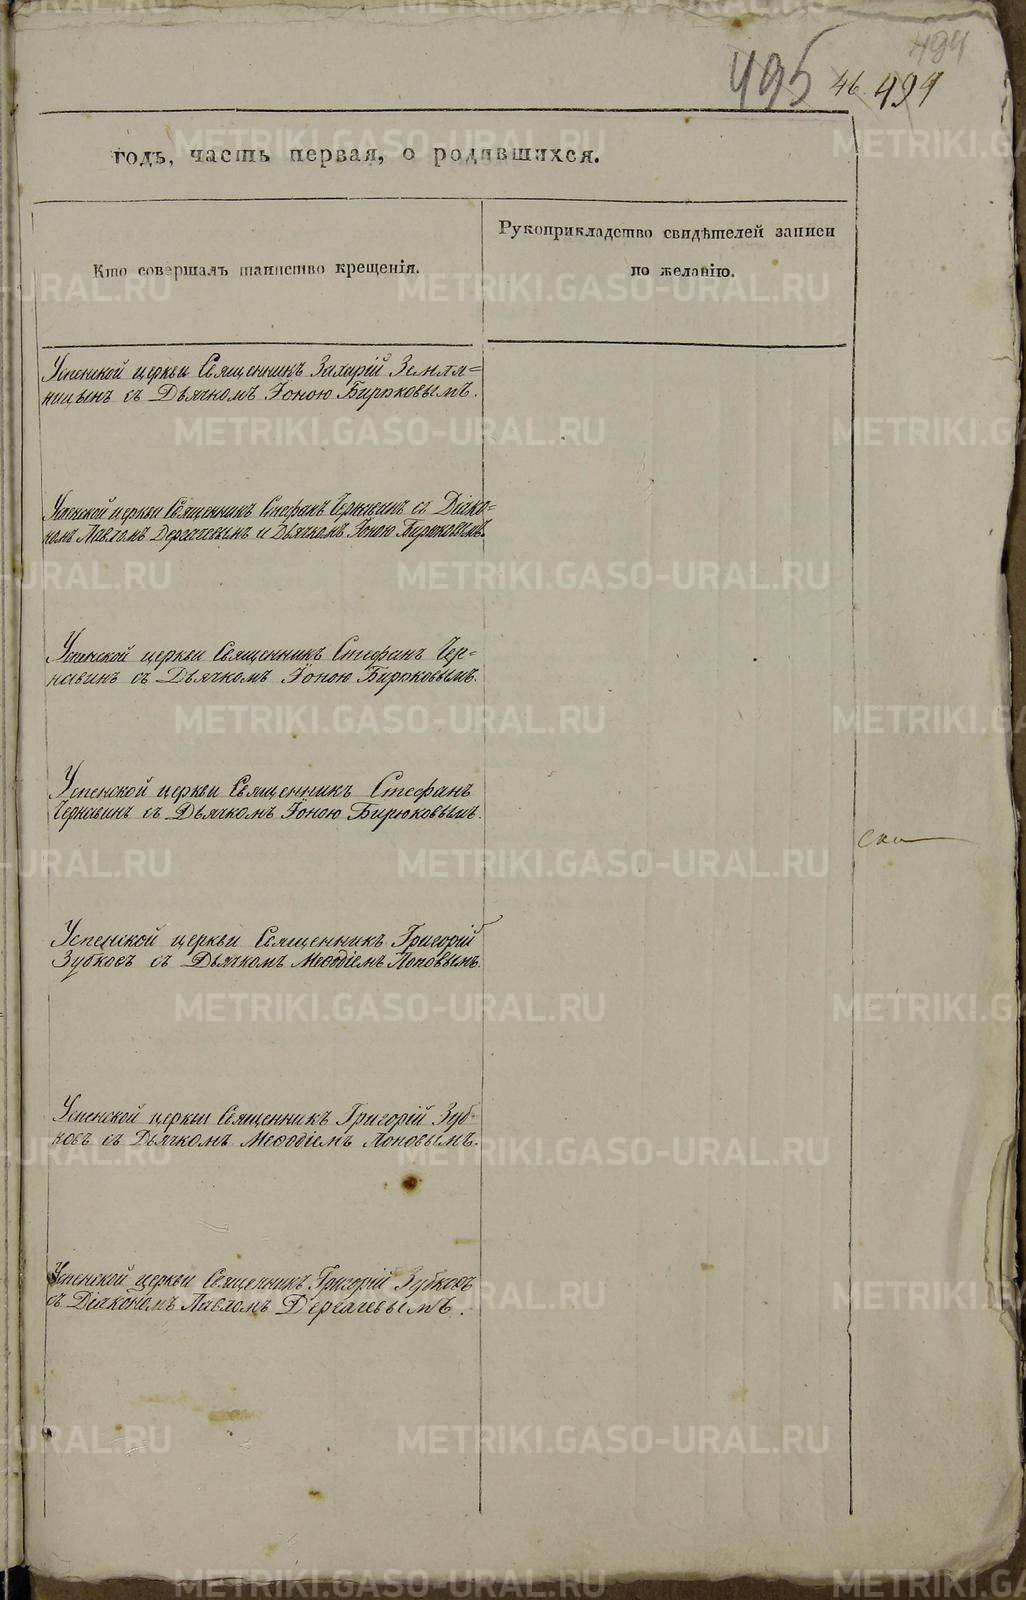 494
495 46. 499
годъ, часть первая, о родившихся.
Кто совершалъ таинство крещенія.
Рукоприкладство свидѣтелей записи
по желанію.
Успенской церкви Священникъ Захарій Земля=
ницынъ съ Дьячкомъ Іоною Бирюковымъ.
Успенской церкви Священникъ Стефанъ Чернавинъ съ Діако=
номъ Павломъ Дергачевымъ и Дьячкомъ Іоною Бирюковымъ.
Успенской церкви Священникъ Стефанъ Чер=
навинъ съ Дьячкомъ Іоною Бирюковымъ.
Успенской церкви Священникъ Стефанъ
Чернавинъ съ Дьячкомъ Іоною Бирюковымъ.
Успенской церкви Священникъ Григорій
Зубковъ съ Дьячкомъ Меѳодіемъ Поповымъ.
Успенской церкви Священникъ Григорій Зуб-
ковъ съ Дьячкомъ Меѳодіемъ Поповымъ.
Успенской церкви Священникъ Григорій Зубковъ
съ Діакономъ Павломъ Дергачевымъ.
METRIKI.GASO-URAL.RU